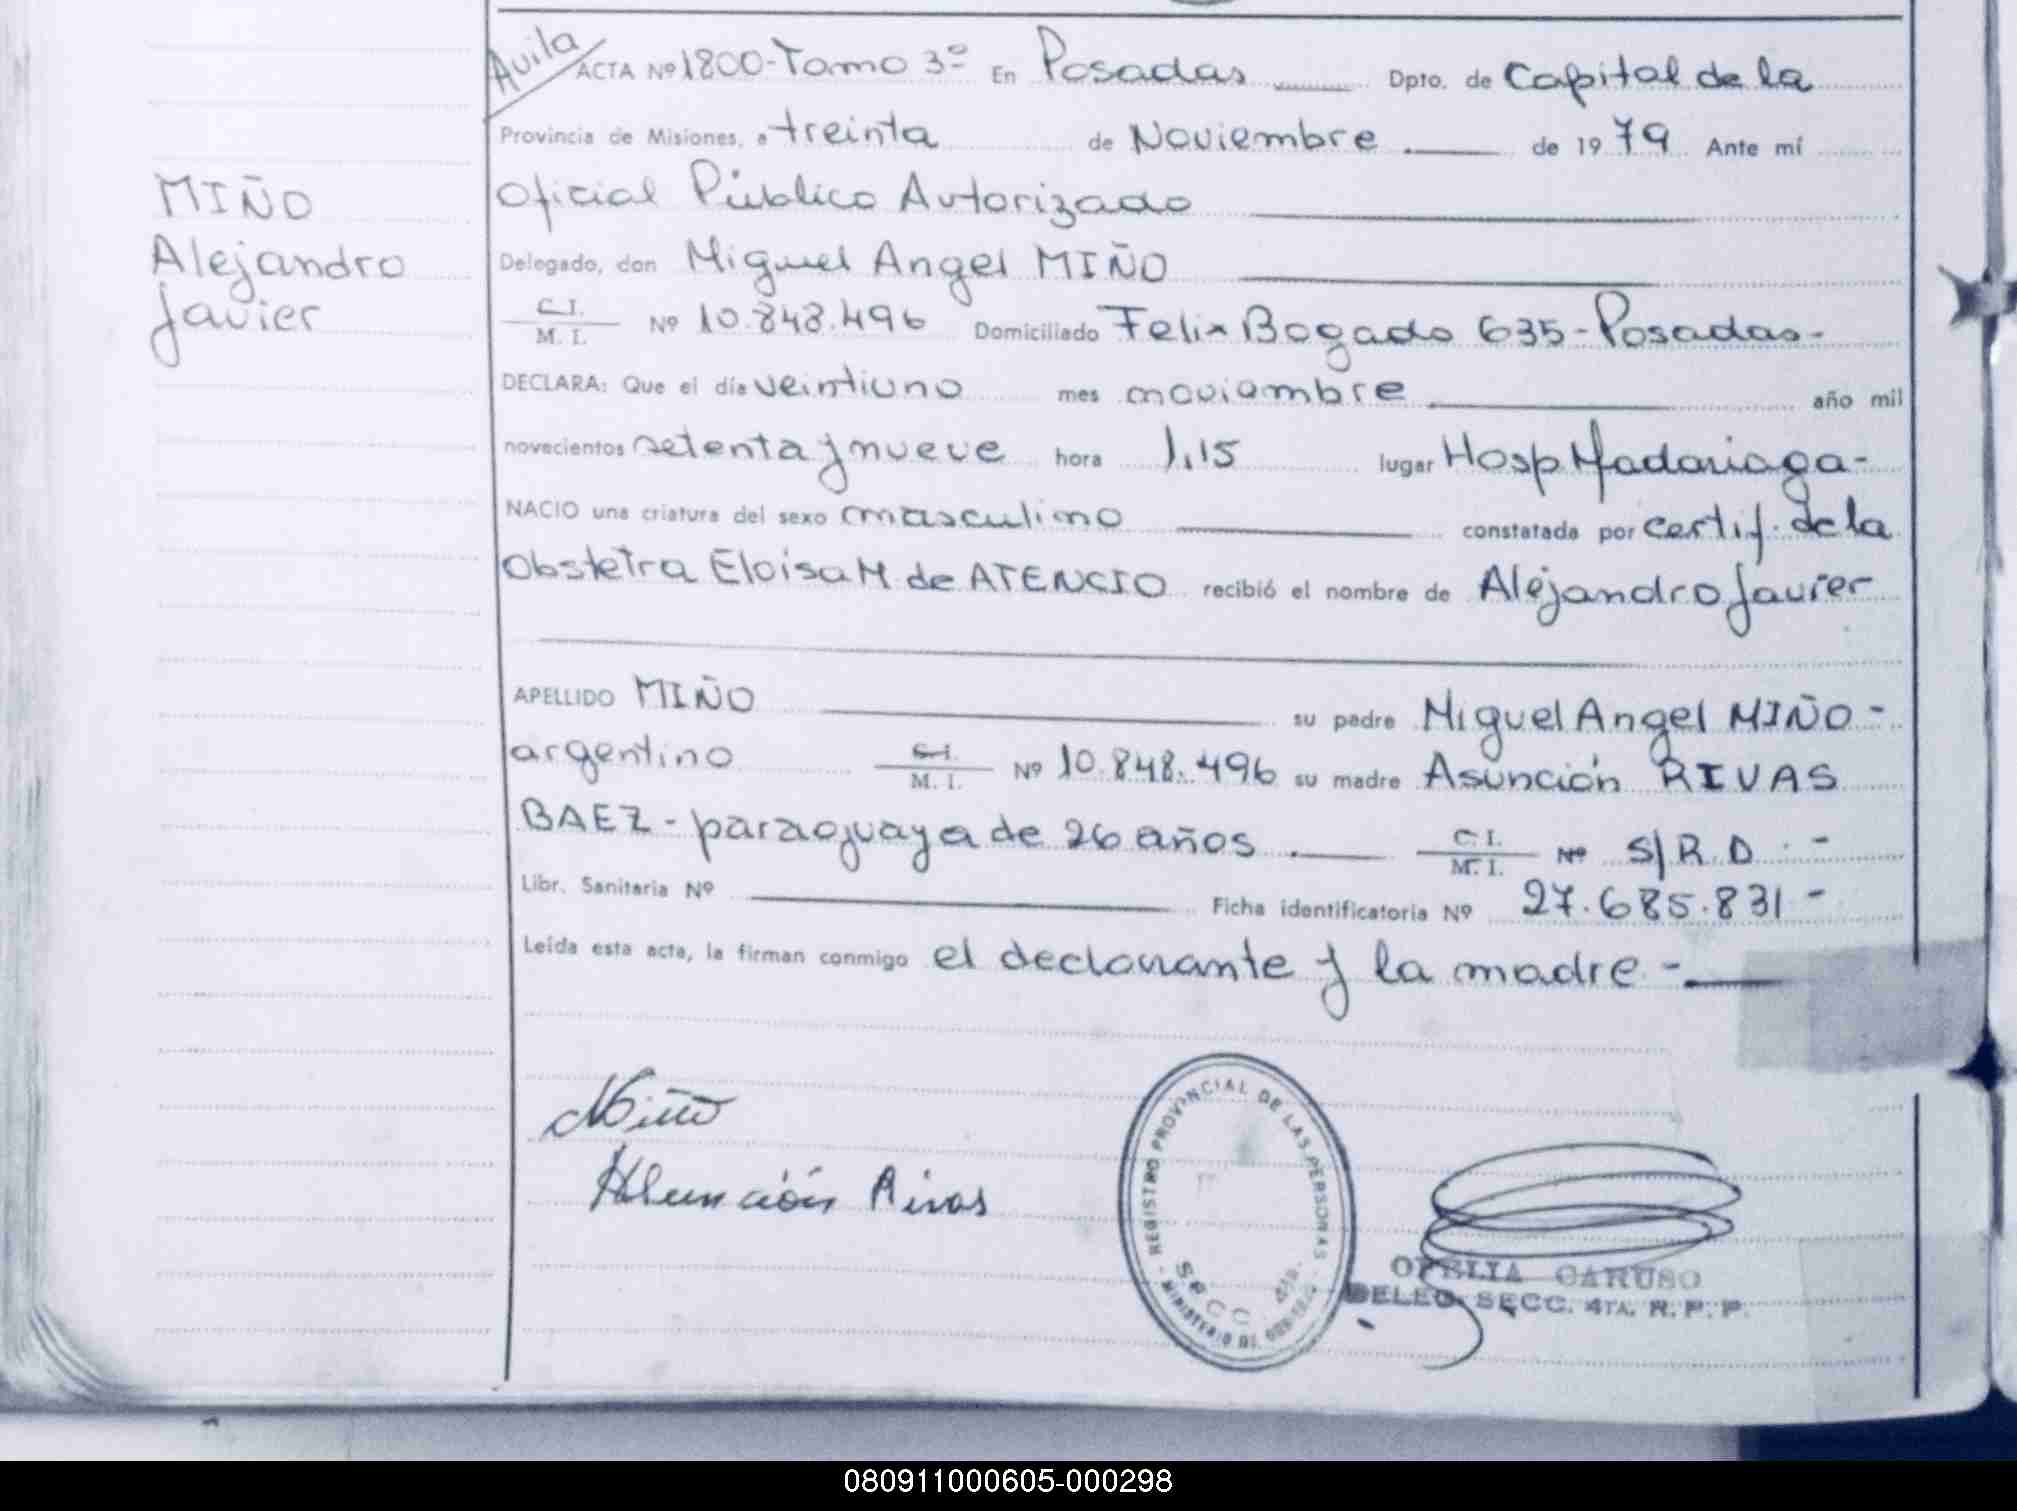 Avila
ACTA Nº 1800-Tomo 3º En Posadas Dpto. de Capital de la
Provincia de Misiones, a treinta de Noviembre de 1979 Ante mí
Oficial Público Autorizado
MIÑO
Alejandro
Javier
Delegado, don Miguel Angel MIÑO
C.I.
M. I. Nº 10.848.496 Domiciliado Felix Bogado 635-Posadas-
DECLARA: Que el día veintiuno mes noviembre año mil
novecientos setenta y nueve hora 1,15 lugar Hosp Madariaga-
NACIO una criatura del sexo masculino constatada por certif. de la
Obstetra Eloisa M. de ATENCIO recibió el nombre de Alejandro Javier
APELLIDO MIÑO su padre Miguel Angel MIÑO-
argentino C.I.
M. I. Nº 10.848.496 su madre Asunción RIVAS
BAEZ- paraguaya de 26 años C. I.
M. I. Nº S/R.D.-
Libr. Sanitaria Nº Ficha identificatoria Nº 27.685.831-
Leída esta acta, la firman conmigo el declarante y la madre-
Miño
Asunción Rivas
REGISTRO PROVINCIAL DE LAS PERSONAS
SECC 4ta.
MINISTERIO DE GOBIERNO
OFELIA CARUSO
DELEG. SECC. 4TA. R. P. P.
080911000605-000298